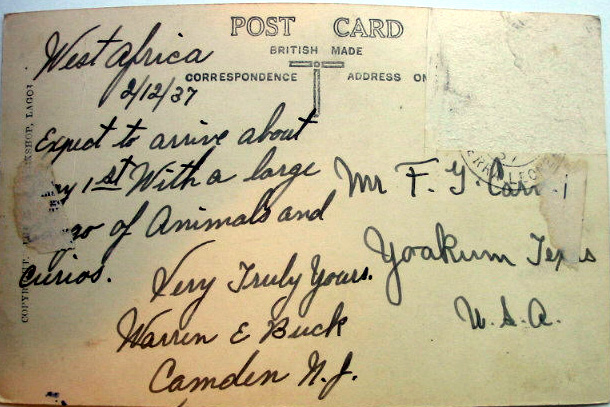 POST CARD
BRITISH MADE
CORRESPONDENCE ADDRESS ON
West Africa
2/12/37
Expect to arrive about
1st With a large
of Animals and
curios.
Very Truly Yours.
Warren E Buck
Camden N.J.
Mr F. G.
Yoakum Texas
U.S.A.